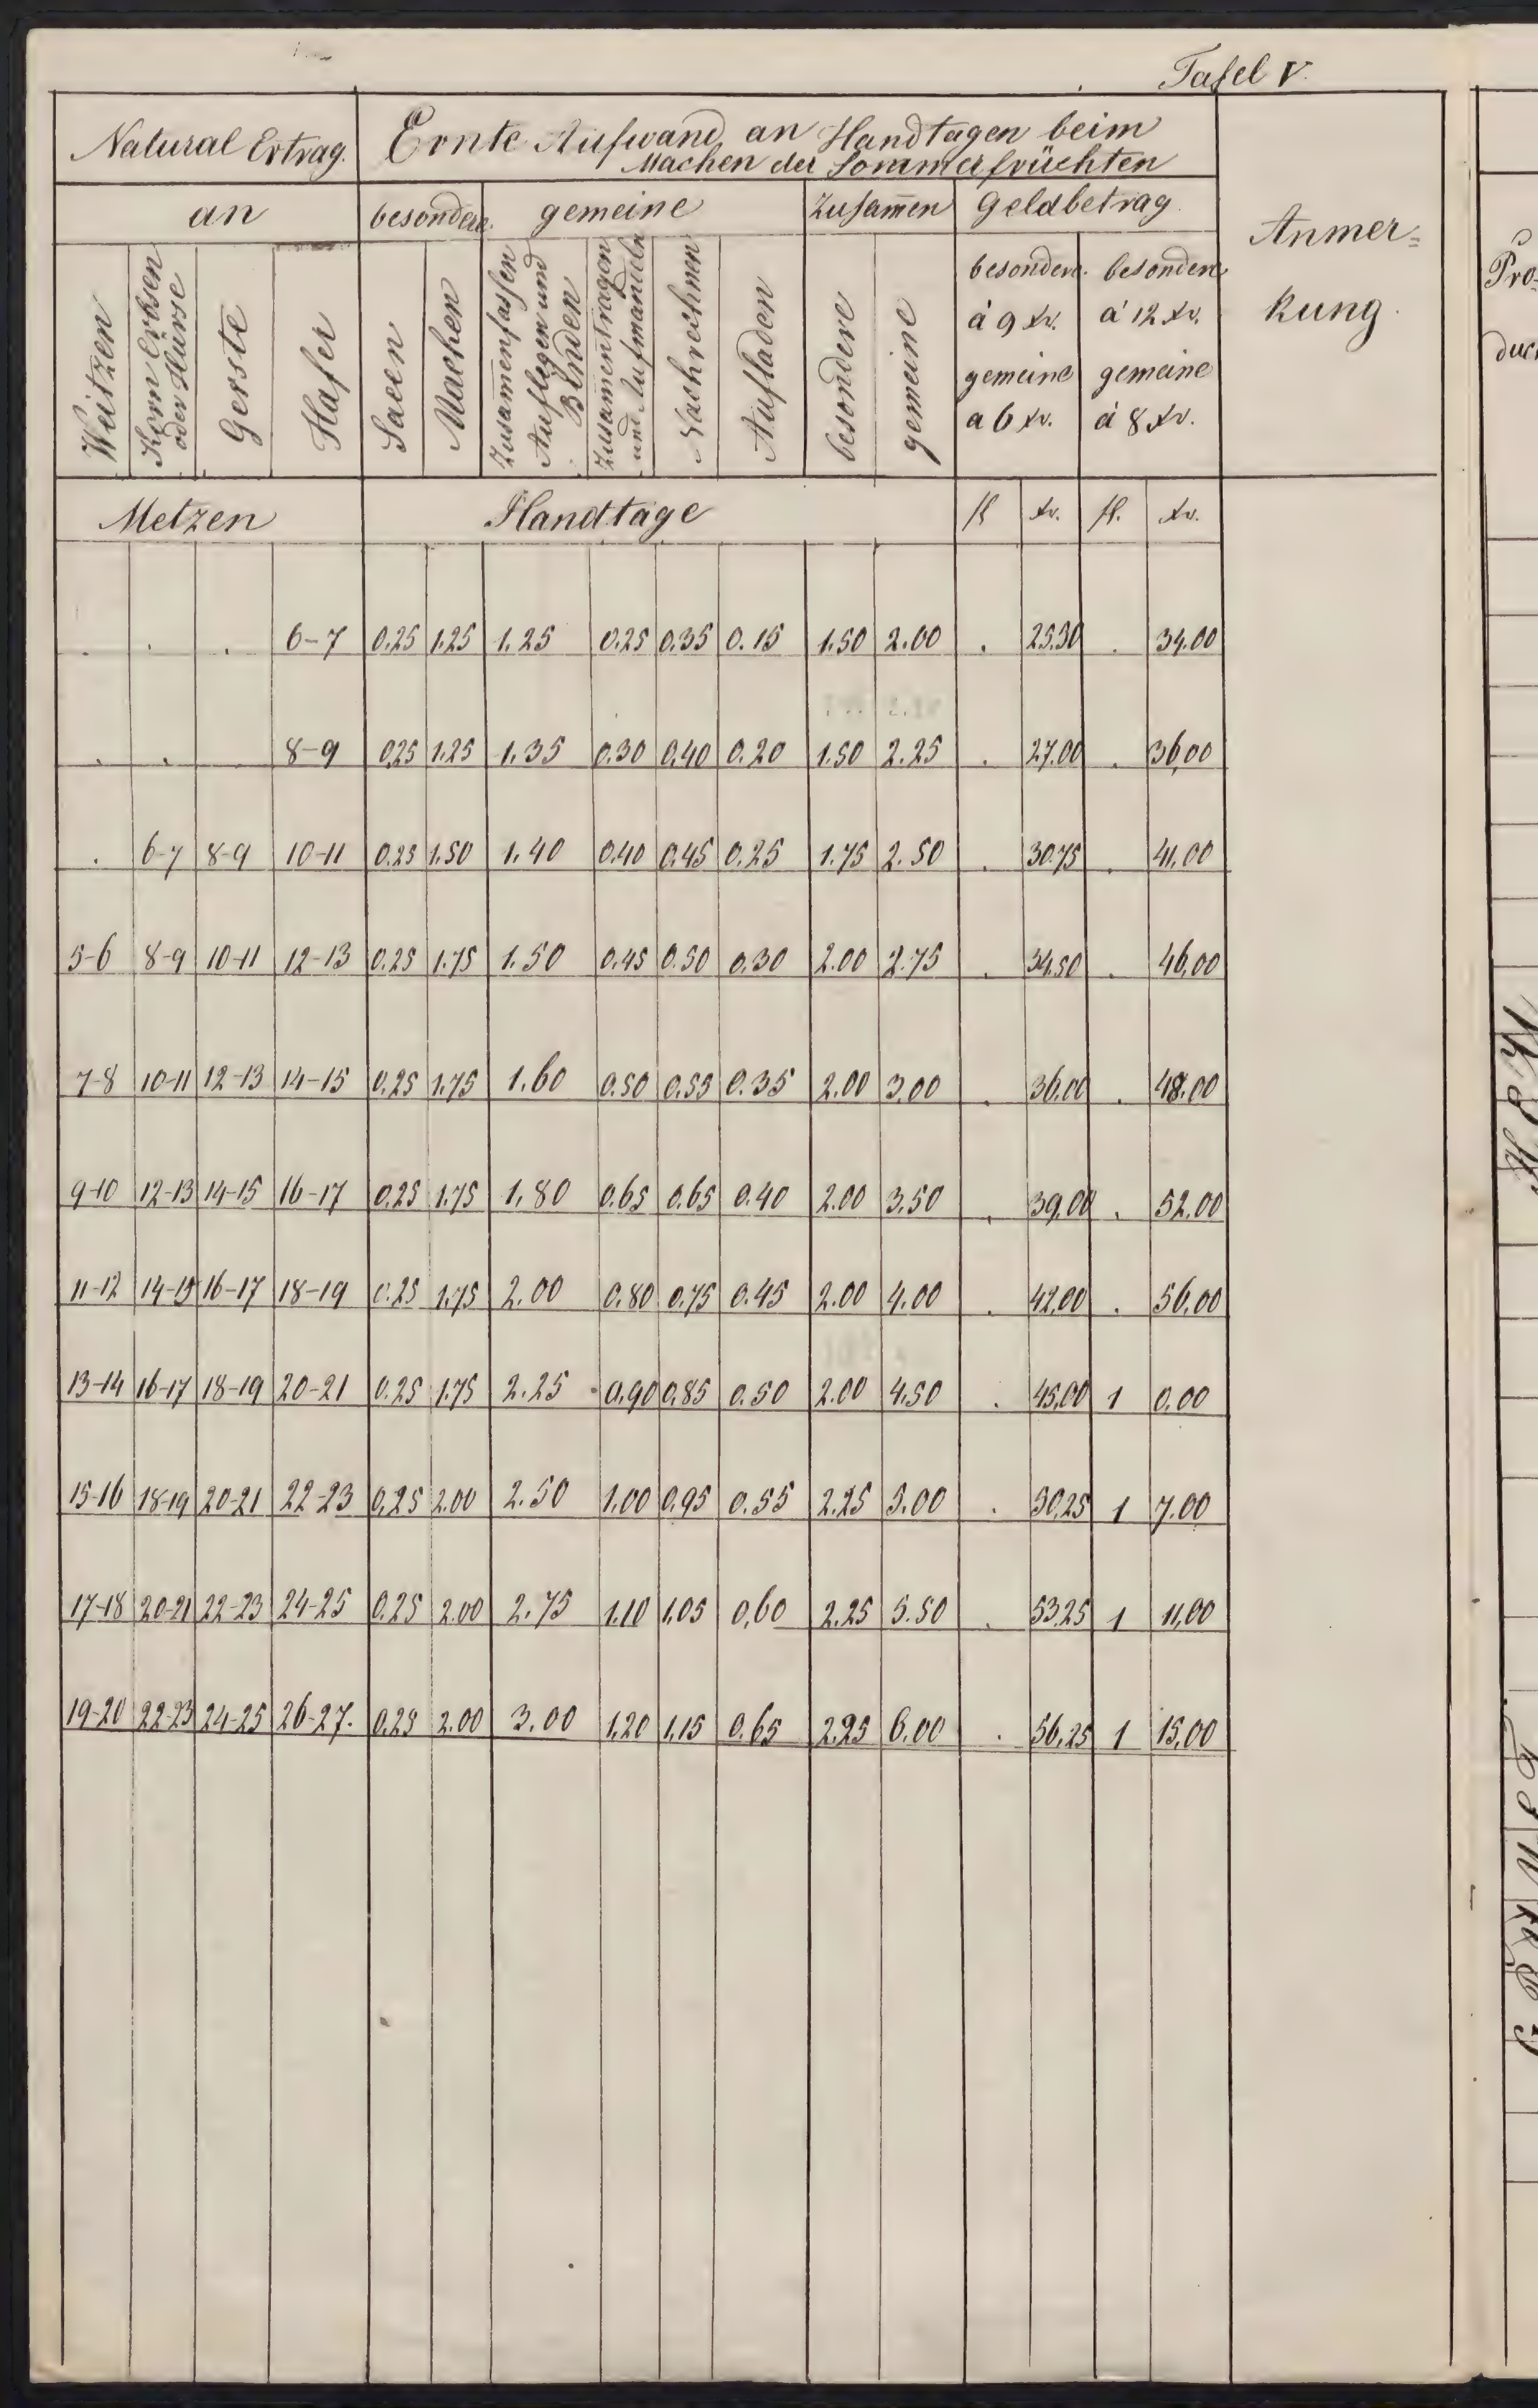 Tafel V.
Natural Ertrag. Ernte Aufwand an Handtagen beim
Machen der Sommerfrüchten
an besondere. gemeine Zusam̄en Geldbetrag. Anmer=
kung.
Weitzen
Korn Erbsen
oder Hürse
Gerste
Hafer
Saeen
Machen
Zusam̄enfassen
Auflegen und
Binden
Zusam̄entragen
und Aufmandeln
Nachrechnen
Aufladen
besondere
gemeine
besondere.
á 9 xr.
gemeine
a 6 xr.
besondere
á 12 xr.
gemeine
á 8 xr.
Metzen Handtäge fl xr. fl. xr.
. . . 6-7 0.25 1.25 1.25 0.25 0.35 0.15 1.50 2.00 . 25.50 . 34.00
. . . 8-9 0.25 1.25 1.35 0.30 0.40 0.20 1.50 2.25 . 27.00 . 36,00
. 6-7 8-9 10-11 0.25 1.50 1.40 0.40 0.45 0.25 1.75 2.50 . 30.75 . 41.00
5-6 8-9 10-11 12-13 0.25 1.75 1.50 0.45 0.50 0.30 2.00 2.75 . 34.50 . 46,00
7-8 10-11 12-13 14-15 0.25 1.75 1.60 0.50 0.55 0.35 2.00 3.00 . 36.00 . 48.00
9-10 12-13 14-15 16-17 0.25 1.75 1.80 0.65 0.65 0.40 2.00 3.50 . 39.00 . 52.00
11-12 14-15 16-17 18-19 0.25 1.75 2.00 0.80 0.75 0.45 2.00 4.00 . 42.00 . 56,00
13-14 16-17 18-19 20-21 0.25 1.75 2.25 0.90 0.85 0.50 2.00 4.50 . 45,00 1 0.00
15-16 18-19 20-21 22-23 0.25 2.00 2.50 1.00 0.95 0.55 2.25 5.00 . 50,25 1 7.00
17-18 20-21 22-23 24-25 0.25 2.00 2.75 1.10 1.05 0,60 2.25 5.50 . 53.25 1 11,00
19-20 22-23 24-25 26-27. 0.25 2.00 3.00 1.20 1.15 0.65 2.25 6.00 . 56.25 1 15,00
Pro=